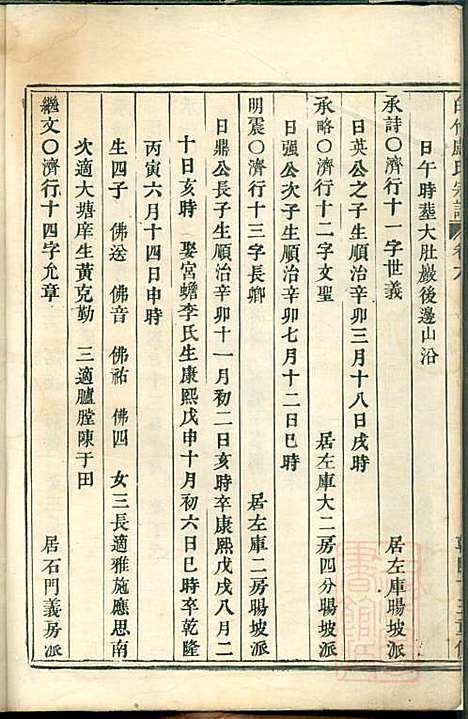 日午時葬大肚巖後邊山沿
承詩○濟行十一字世義 居左庫暘坡派
日英公之子生順治辛卯三月十八日戌時
承略○濟行十二字文聖 居左庫大二房四分暘坡派
日强公次子生順治辛卯七月十二日巳時
明震○濟行十三字長卿 居左庫二房暘坡派
日鼎公長子生順治辛卯十一月初二日亥時卒康熙戊戌八月二
十日亥時 娶宮蟾李氏生康熙戊申十月初六日巳時卒乾隆
丙寅六月十四日申時
生四子 佛送 佛音 佛祐 佛四 女三長適雅施應思南
次適大塘庠生黃克勤 三適臚膛陳于田
繼文○濟行十四字允章 居石門義房派